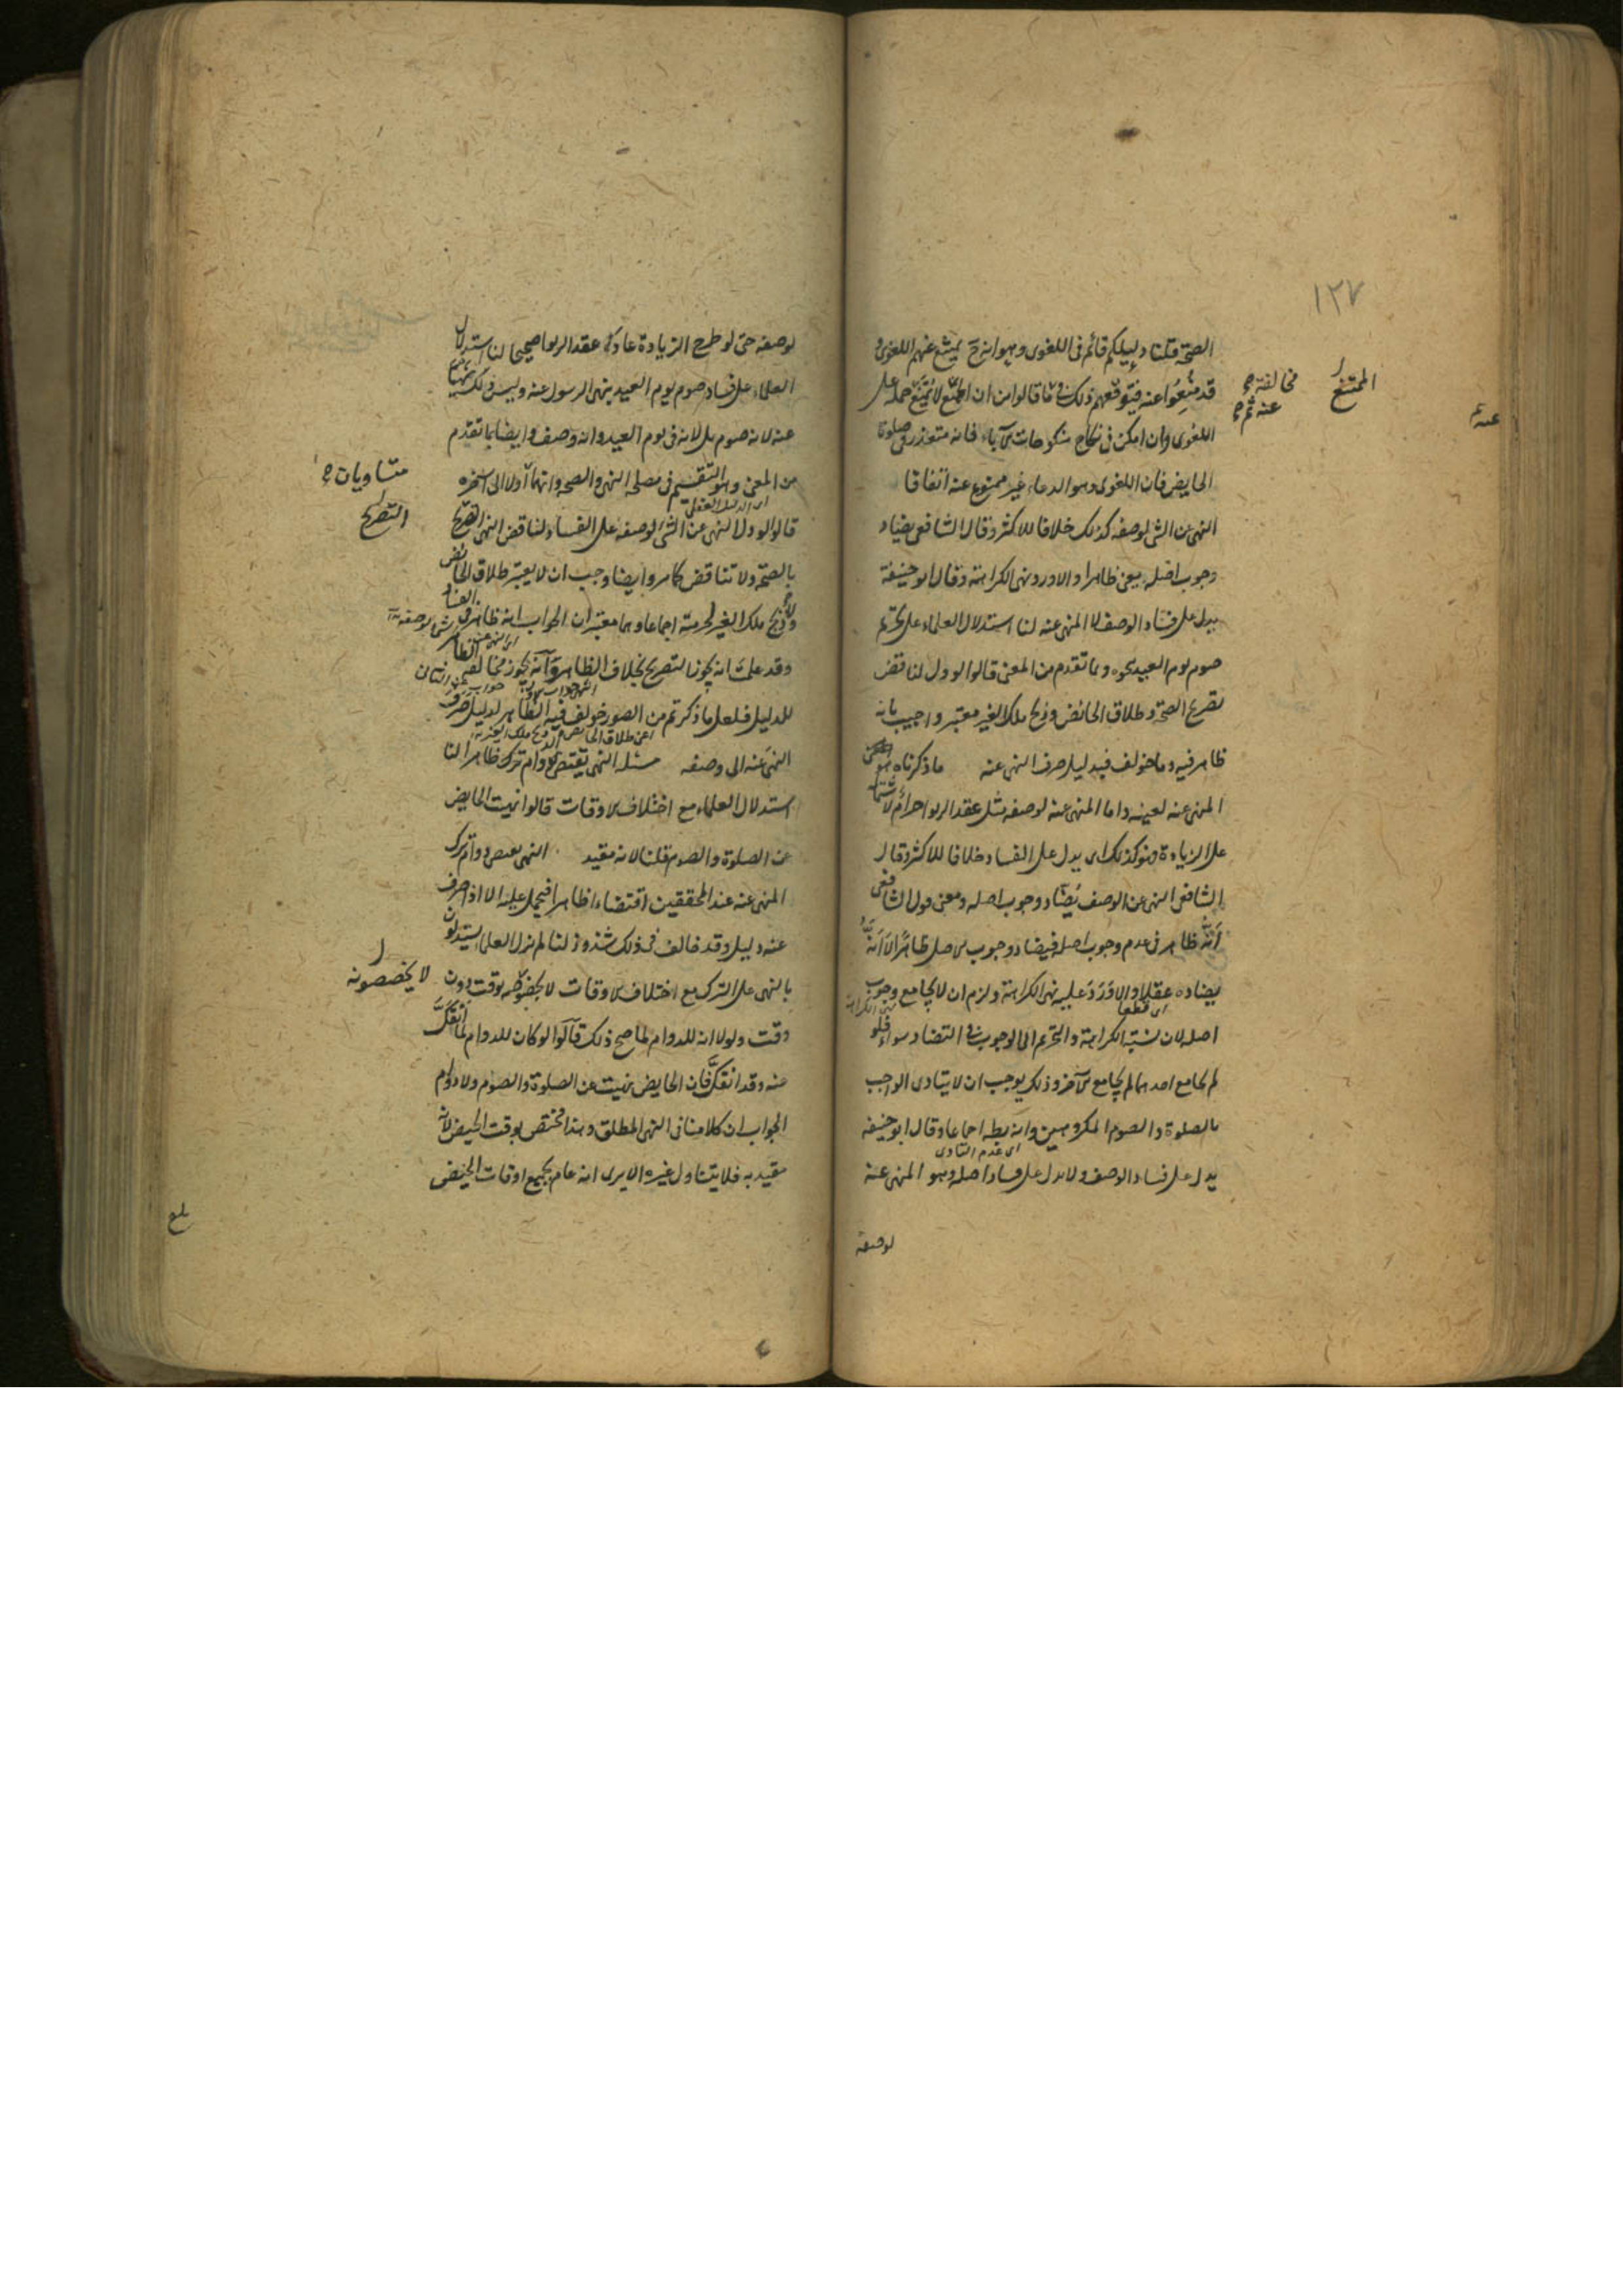 ١٢٧
الصحة قلنا دليلكم قائم في اللغوى وهو انه ح يمتنع عنهم اللغوى و
قد منعوا عنه فيتوقعهم ذلك في ما قالوا من ان الممتنع لا يمنع حمله على
اللغوى وان امكن في نكاح منكوحات الآباء فانه متعذر في صلوة
الحايض فان اللغوى وهو الدعاء غير ممنوع عنه اتفاقا
النهى عن الشى لوصفه كذلك خلافا للاكثر وقال الشافعى يضاد
وجوب اصله يعنى ظاهرا والا ورد نهى الكراهة وقال ابو حنيفة
يدل على فساد الوصف لا المنهى عنه لنا استدلال العلماء على تحريم
صوم يوم العيد بنحوه وبما تقدم من المعنى قالوا لو دل لناقض
تصريح الصحة وطلاق الحائض وذبح ملك الغير معتبر واجيب بانه
ظاهر فيه وما خولف فبدليل صرف النهى عنه ما ذكرناه هو
المنهى عنه لعينه واما المنهى عنه لوصفه مثل عقد الربوا حرام لاشتماله
على الزيادة فهو كذلك اى يدل على الفساد خلافا للاكثر وقال
الشافعى النهى عن الوصف يضاد وجوب اصله ومعنى قول الشافعى
انه ظاهر في عدم وجوب اصله فيضاد وجوب الاصل ظاهرا لا انه
يضاده عقلا والا ورد عليه نهى الكراهة ولزم ان لا يجامع وجوب
اى قطعا
اصله لان نسبة الكراهة والتحريم الى الوجوب في التضاد سواء فلو
لم يجامع احدهما لم يجامع الآخر وذلك يوجب ان لا يتادى الواجب
بالصلوة والصوم المكروهين وانه بط اجماعا وقال ابو حنيفه
اى عدم التادى
يدل على فساد الوصف ولا يدل على فساد اصله وهو المنهى عنه
لوصفه
الممتنع
مخالفة
عنه
لوصفه حتى لو طرح الزيادة عاد عقد الربوا صحيحا لنا استدلال
العلماء على فساد صوم يوم العيد بنهى الرسول عنه وليس ذلك
عنه لانه صوم بل لانه في يوم العيد وانه وصف وايضا بما تقدم
من المعنى وهو التقسيم في مصلحة النهى والصحة وانهما اولا الى آخره
اى الدليل العقلى
قالوا لو دل النهى عن الشى لوصفه على الفساد لناقض النهى التصريح
بالصحة ولا تناقض كما مر وايضا وجب ان لا يعتبر طلاق الحائض
وذبح ملك الغير لحرمته اجماعا وهما معتبران الجواب انه ظاهر في الفساد
وقد علمت انه يجوز التصريح بخلاف الظاهر وانه يجوز مخالفة الظاهر
للدليل فلعل ما ذكرتم من الصور خولف فيه الظاهر لدليل صرف
اعنى طلاق الحائض وذبح ملك الغير
النهى عنه الى وصفه مسئله النهى يقتضى دوام ترك ظاهرا لنا
استدلال العلماء مع اختلاف الاوقات قالوا نهيت الحايض
عن الصلوة والصوم قلنا لانه مقيد النهى يقتضى دوام ترك
المنهى عنه عند المحققين اقتضاء ظاهرا فيحمل عليه الا اذا صرف
عنه دليل وقد خالف في ذلك شذوذ لنا لم يزل العلماء يستدلون
بالنهى على الترك مع اختلاف الاوقات لا يخصونه بوقت دون
وقت ولولا انه للدوام لما صح ذلك قالوا لو كان للدوام لما انفك
عنه وقد انفك فان الحايض نهيت عن الصلوة والصوم ولا دوام
الجواب ان كلامنا في النهى المطلق وهذا مختص بوقت الحيض لانه
مقيد به فلا يتناول غيره الا يرى انه عام بجميع اوقات الحيض
متساويات
التصريح
لا يخصصونه
بلغ